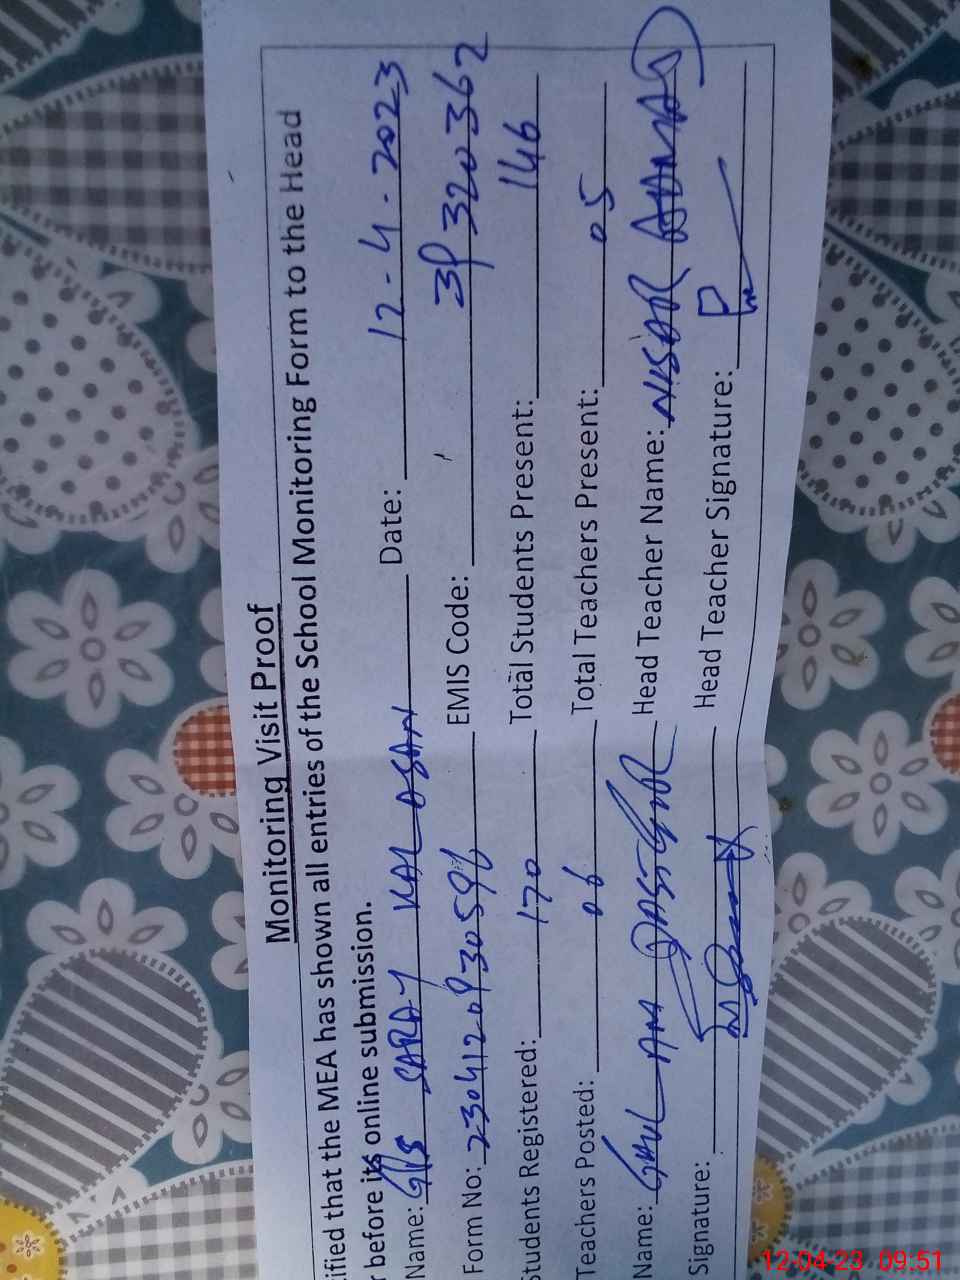 Monitoring Visit Proof
ified that the MEA has shown all entries of the School Monitoring Form to the Head
r before its online submission.
Name: GPS SARAY KAL ASAN Date: 12-4-2023
Form No: EMIS Code:
Students Registered: 170 Total Students Present: 146
Teachers Posted: 06 Total Teachers Present: 05
Name: Head Teacher Name: NISAR AHMAD
Signature: Head Teacher Signature:
12-04-23 09:51